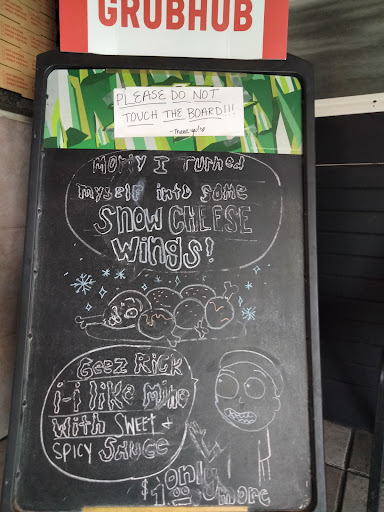 GRUBHUB
PLEASE DO NOT
TOUCH THE BOARD!!!
- Thank you!
Morty I turned
myself into some
SNOW CHEESE
Wings!
Geez Rick
i-i like mine
with SWEET &
SPICY SAUCE
only
$1.00 more